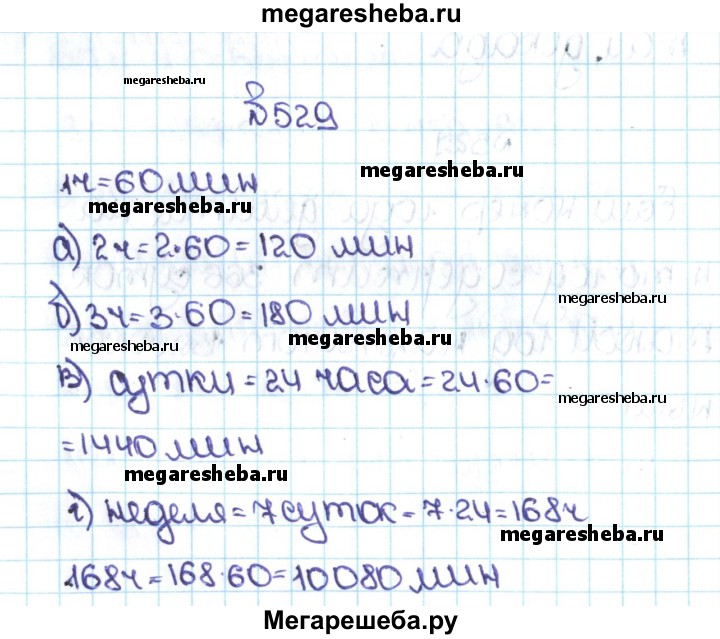 megaresheba.ru
megaresheba.ru
№529
1ч=60мин
megaresheba.ru
megaresheba.ru
а) 2ч=2·60=120 мин
б) 3ч=3·60=180 мин
megaresheba.ru
megaresheba.ru
megaresheba.ru
в) сутки=24 часа=24·60=
megaresheba.ru
=1440мин
megaresheba.ru
г) неделя=7суток=7·24=168ч
megaresheba.ru
168ч=168·60=10080мин
Мегарешеба.ру